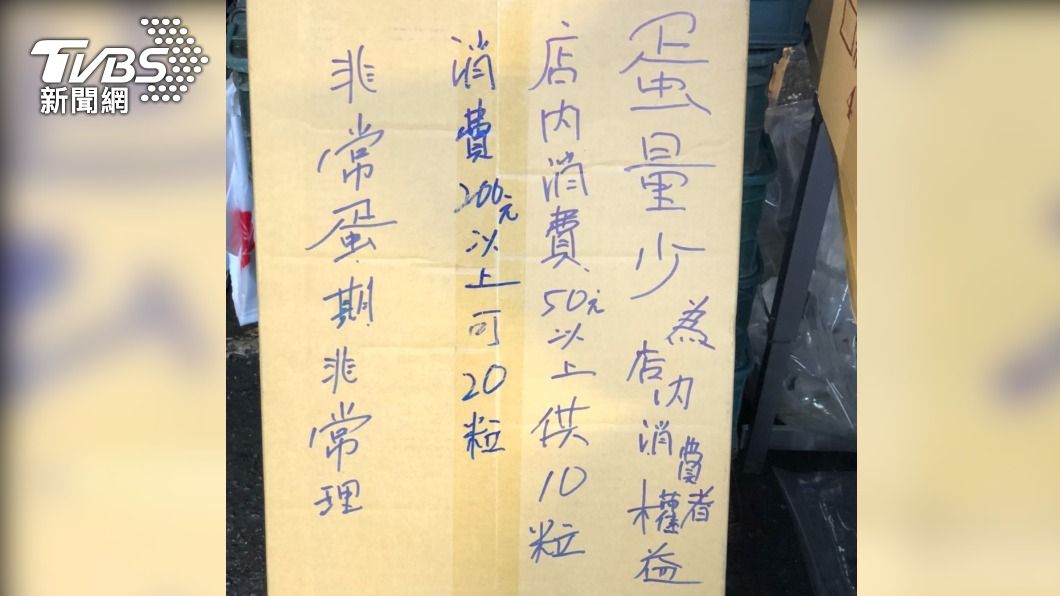 TVBS
新聞網
蛋量少為店內消費者權益
店內消費50元以上供10粒
消費200元以上可20粒
非常蛋期非常理